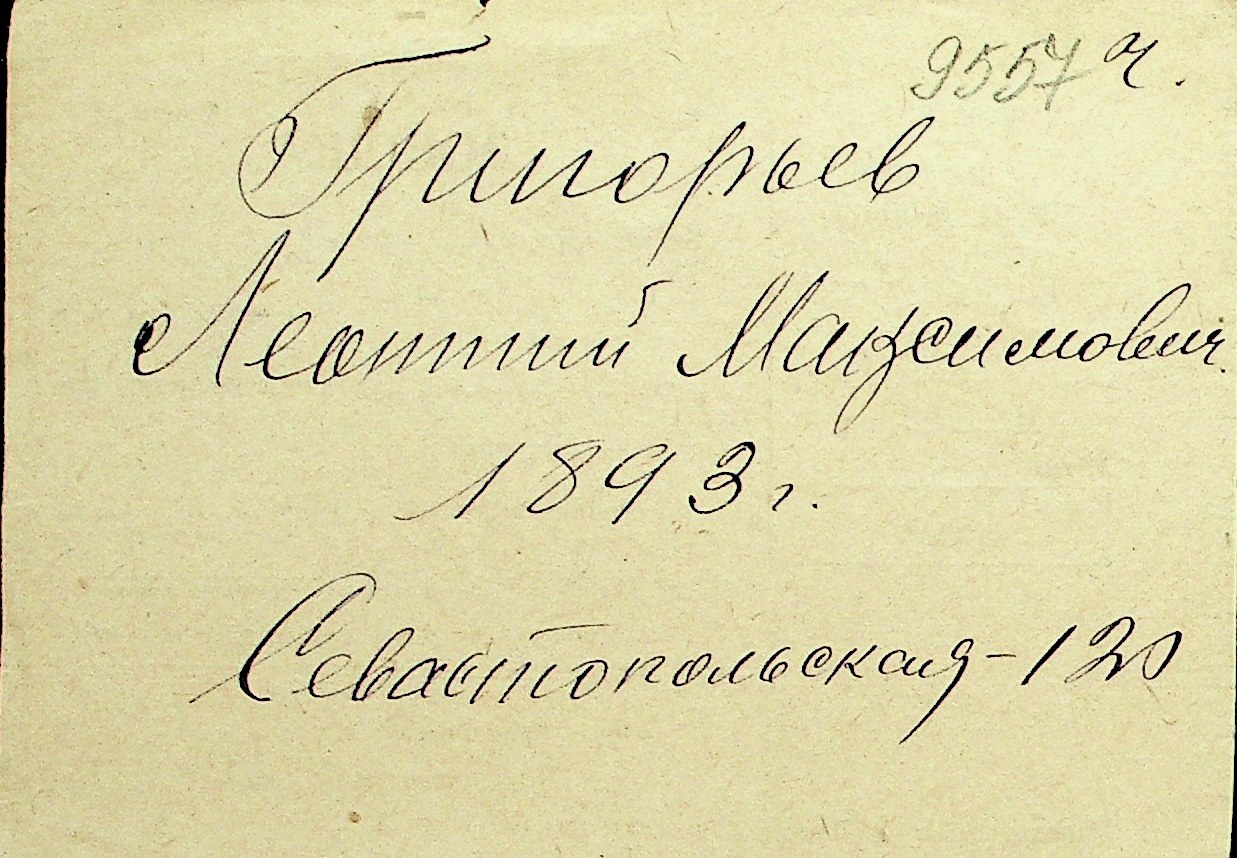 9557 ч.
Григорьев
Леонтий Максимович.
1893 г.
Севастопольская - 120